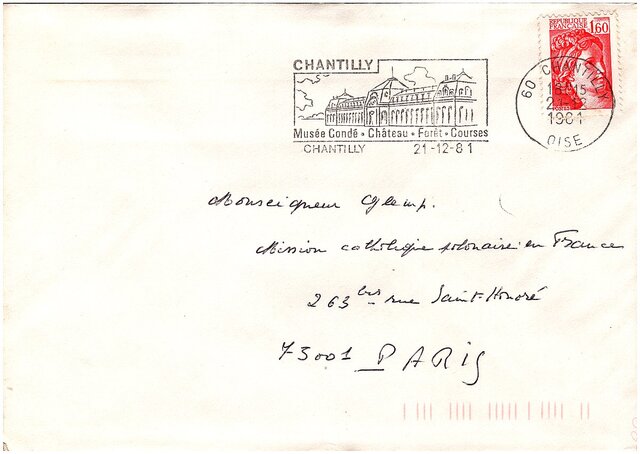 CHANTILLY
REPUBLIQUE
FRANÇAISE 1,60
60 CHANTILLY
1981
OISE
Musée Condé • Château • Forêt • Courses
CHANTILLY 21-12-81
Monseigneur Glemp.
Mission catholique polonaise en France
263 bis rue Saint-Honoré
75001 PARIS